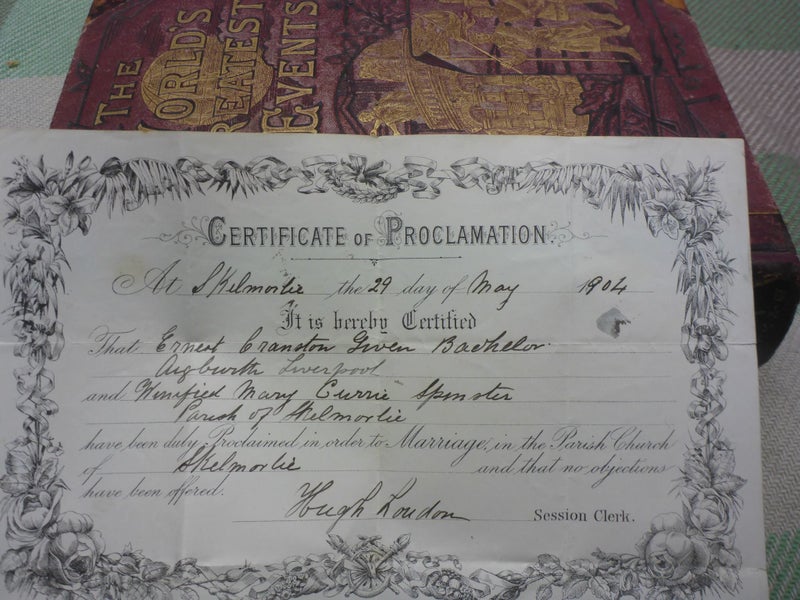 THE
WORLD'S
GREATEST
EVENTS
CERTIFICATE OF PROCLAMATION.
At Skelmorlie the 29 day of May 1904
It is hereby Certified
That Ernest Cranston Given Bachelor
Aigburth Liverpool
and Winifred Mary Currie Spinster
Parish of Skelmorlie
have been duly Proclaimed in order to Marriage, in the Parish Church
of Skelmorlie and that no objections
have been offered.
Hugh Loudon Session Clerk.